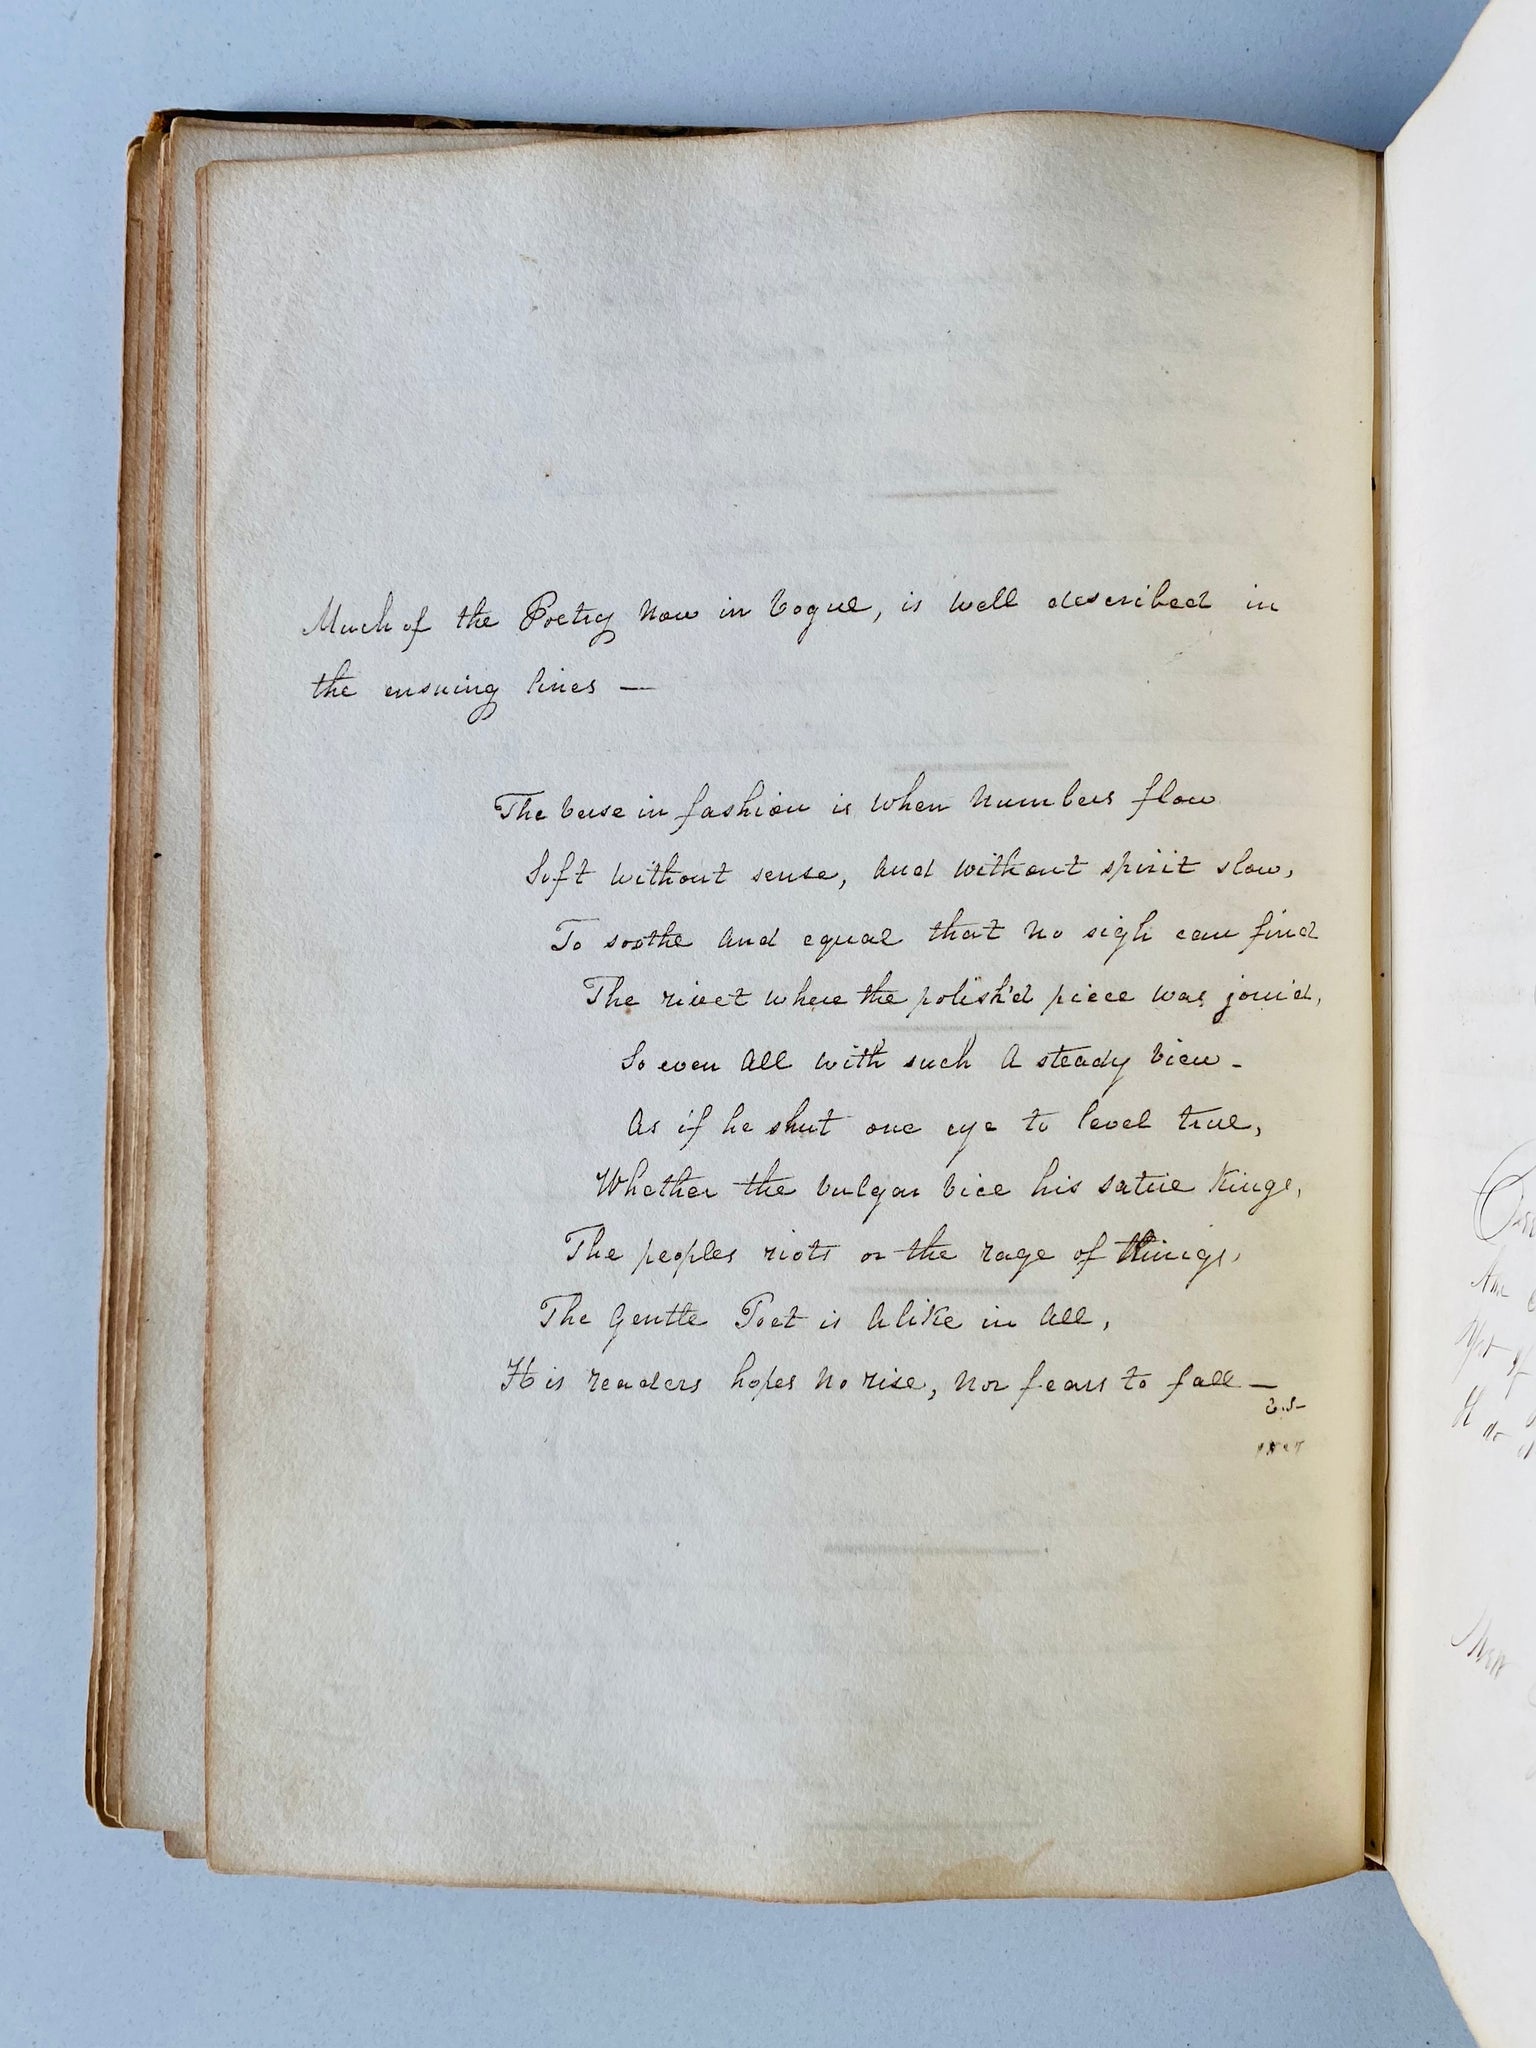 Much of the Poetry Now in Vogue, is well described in
the ensuing lines —
The verse in fashion is when Numbers flow
Soft without sense, and without spirit slow,
To soothe and equal that no sigh can find
The rivet where the polish'd piece was join'd,
So even all with such a steady view -
As if he shut one eye to level true,
Whether the vulgar vice his satire
The peoples riots or the rage of
The Gentle Poet is alike in all,
His readers hopes no rise, nor fears to fall —